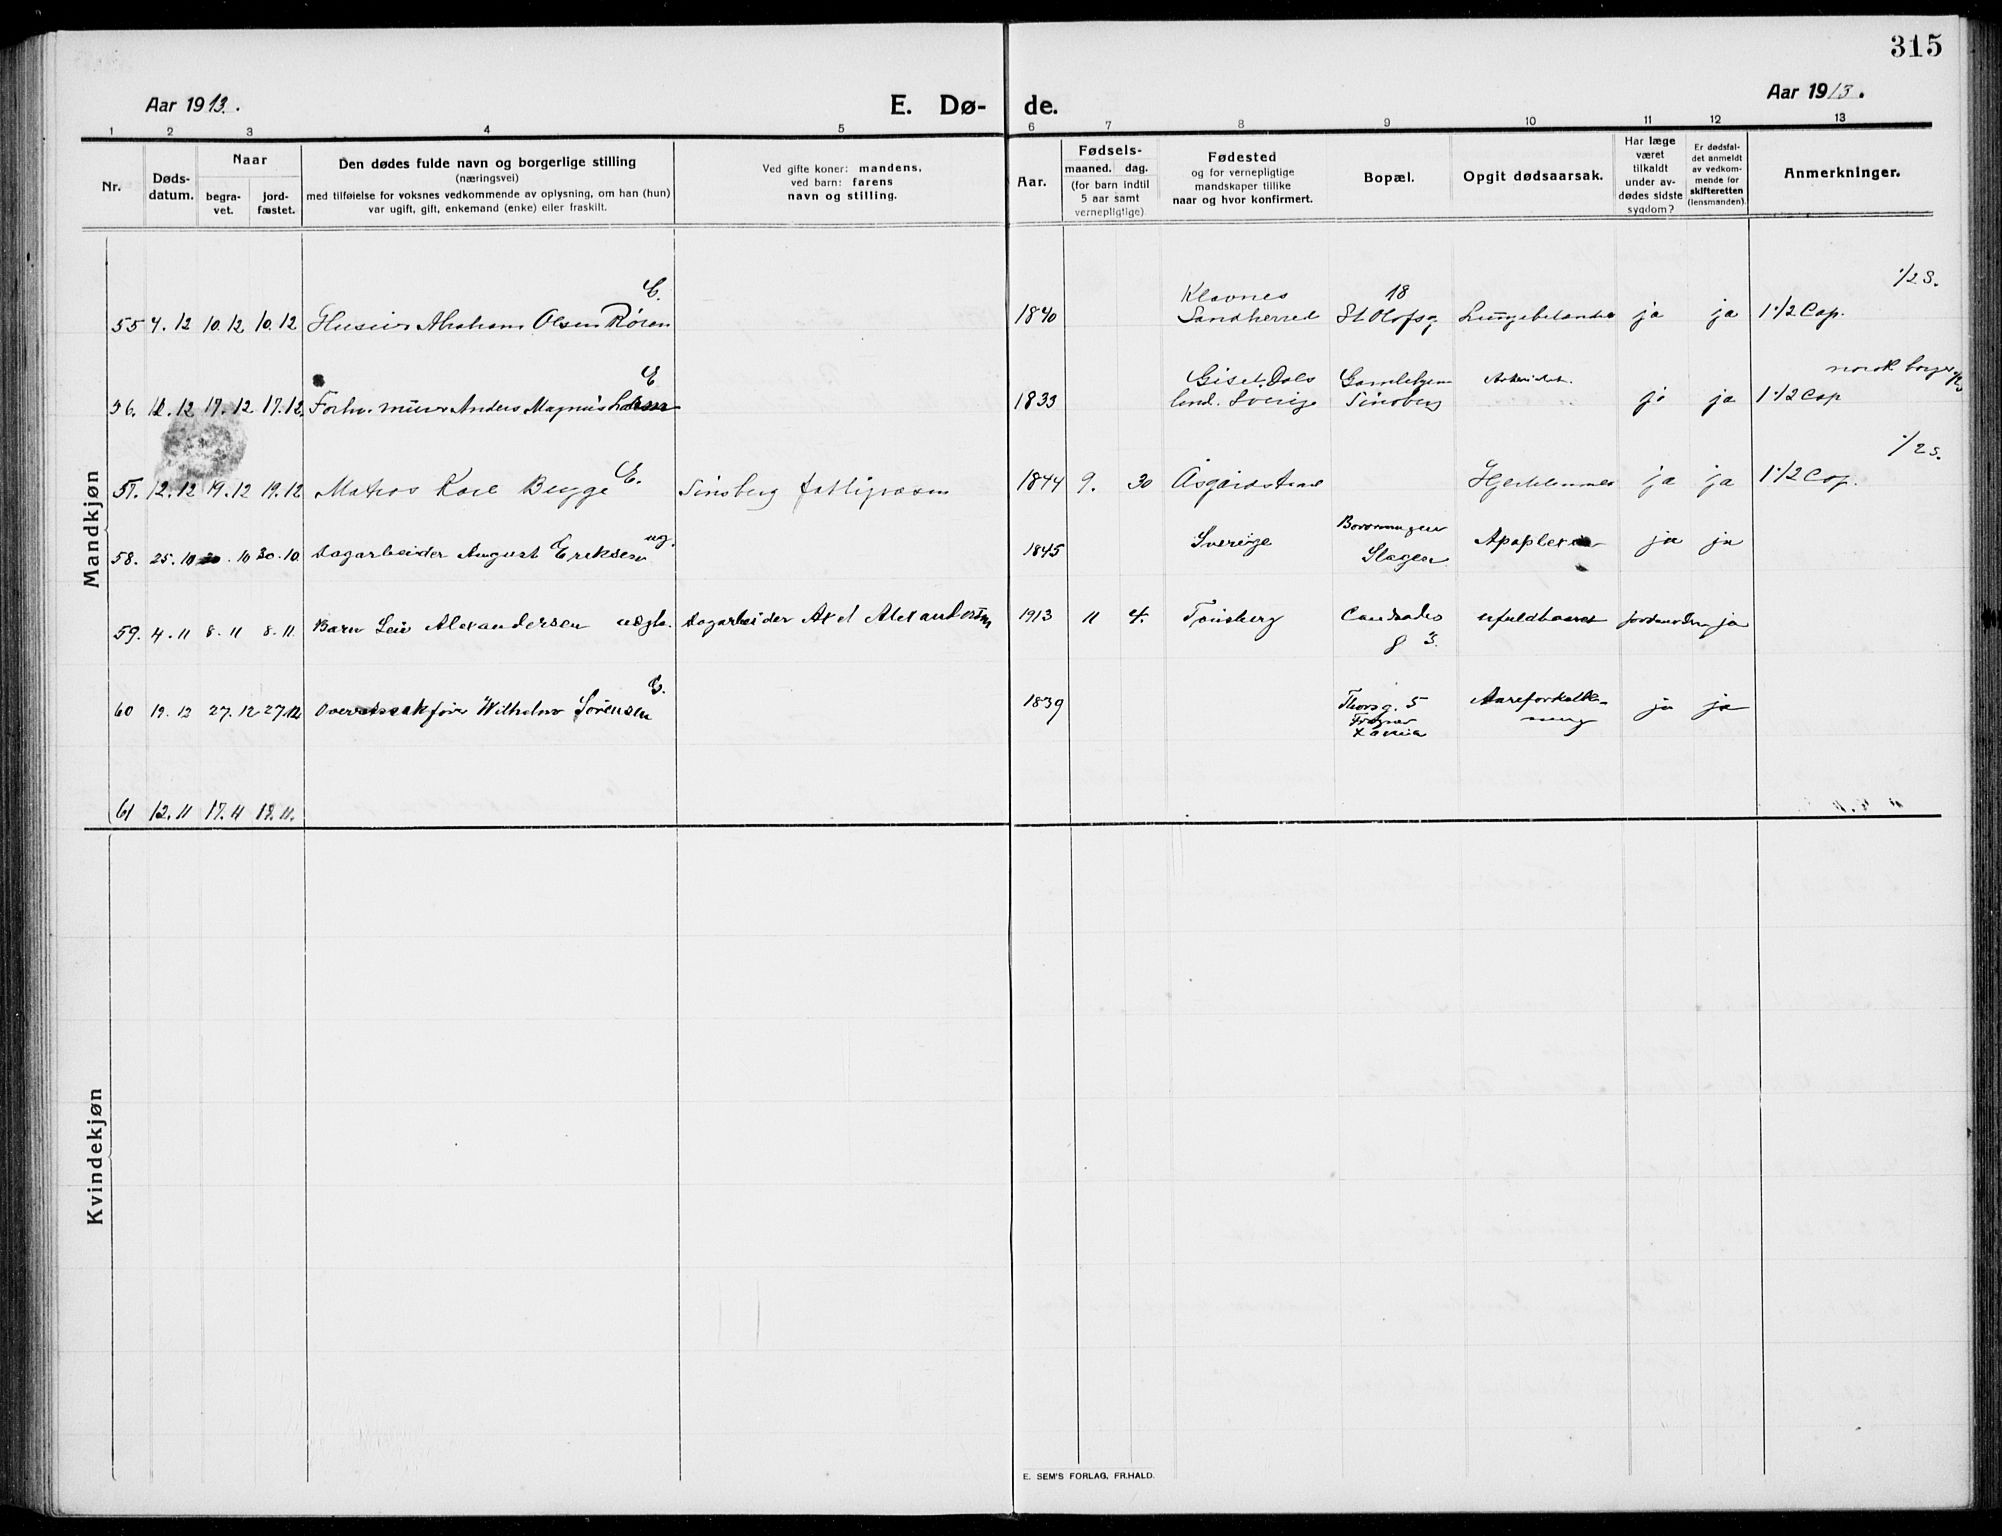 315
Aar 1913.
E. Dø-
de.
Aar 1913.
1 2 3 4 5 6 7 8 9 10 11 12 13
Nr.
Døds-
datum.
Naar
begra-
vet.
jord-
fæstet.
Den dødes fulde navn og borgerlige stilling
(næringsvei)
med tilføielse for voksnes vedkommende av oplysning, om han (hun)
var ugift, gift, enkemand (enke) eller fraskilt.
Ved gifte koner: mandens,
ved barn: farens
navn og stilling.
Aar.
Fødsels-
maaned. dag.
(for barn indtil
5 aar samt
vernepligtige)
Fødested
og for vernepligtige
mandskaper tillike
naar og hvor konfirmert.
Bopæl.
Opgit dødsaarsak.
Har læge
været
tilkaldt
under av-
dødes sidste
sygdom?
Er dødsfal-
det anmeldt
av vedkom-
mende for
skifteretten
(lensmanden).
Anmerkninger.
Mandkjøn
E. Klavnes 18 1/2 S.
55 4. 12 10. 12 10. 12 Abraham Olsen 1840 Sandherred St. Olofsg ja ja 1 1/2 Cap.
E norsk borger
56. 12 17. 12 17. 12 Forhv. murer Anders Magnus 1833 Sverige ja ja 1 1/2 Cap
E. 1/2 S.
57. 12. 12 19. 12 19. 12 Matros Karl Bugge 1844 9. 30 ja ja 1 1/2 Cap.
ug.
58. 25. 10 30. 10 30. 10 Dagarbeider August Eriksen 1845 Sverige Slagen ja ja
59. 4. 11 8. 11 8. 11 Barn Leif Alexandersen uægte. Dagarbeider Axel Alexandersen 1913 11 4. Tønsberg ufuldbaaret ja
g 3.
E.
60 19. 12 27. 12 27. 12 Overretssakfører Wilhelm Sörensen 1839 Thorsg. 5 Aareforkalk-
ning ja ja
61 12. 11 17. 11 17. 11.
Kvindekjøn
E. SEM'S FORLAG, FR.HALD.